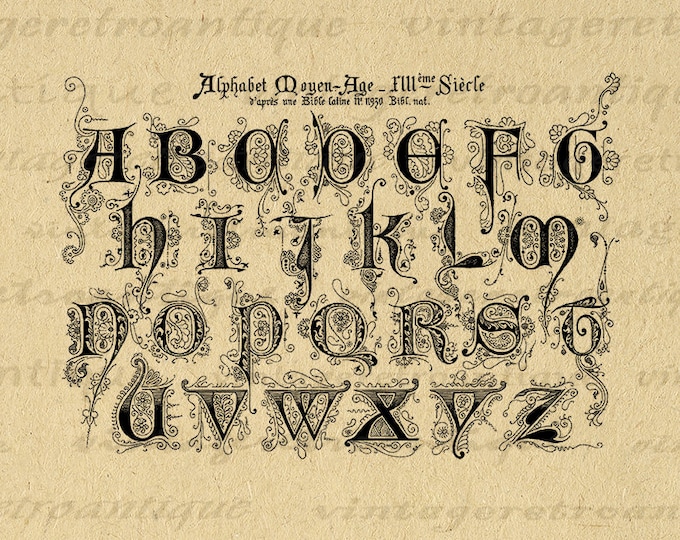 Alphabet Moyen-Age _ XIIIème Siècle
d'après une Bible latine No. 11930 Bibl. nat.
A B C D E F G
H I J K L M
N O P Q R S T
U V W X Y Z
vintageretroantique